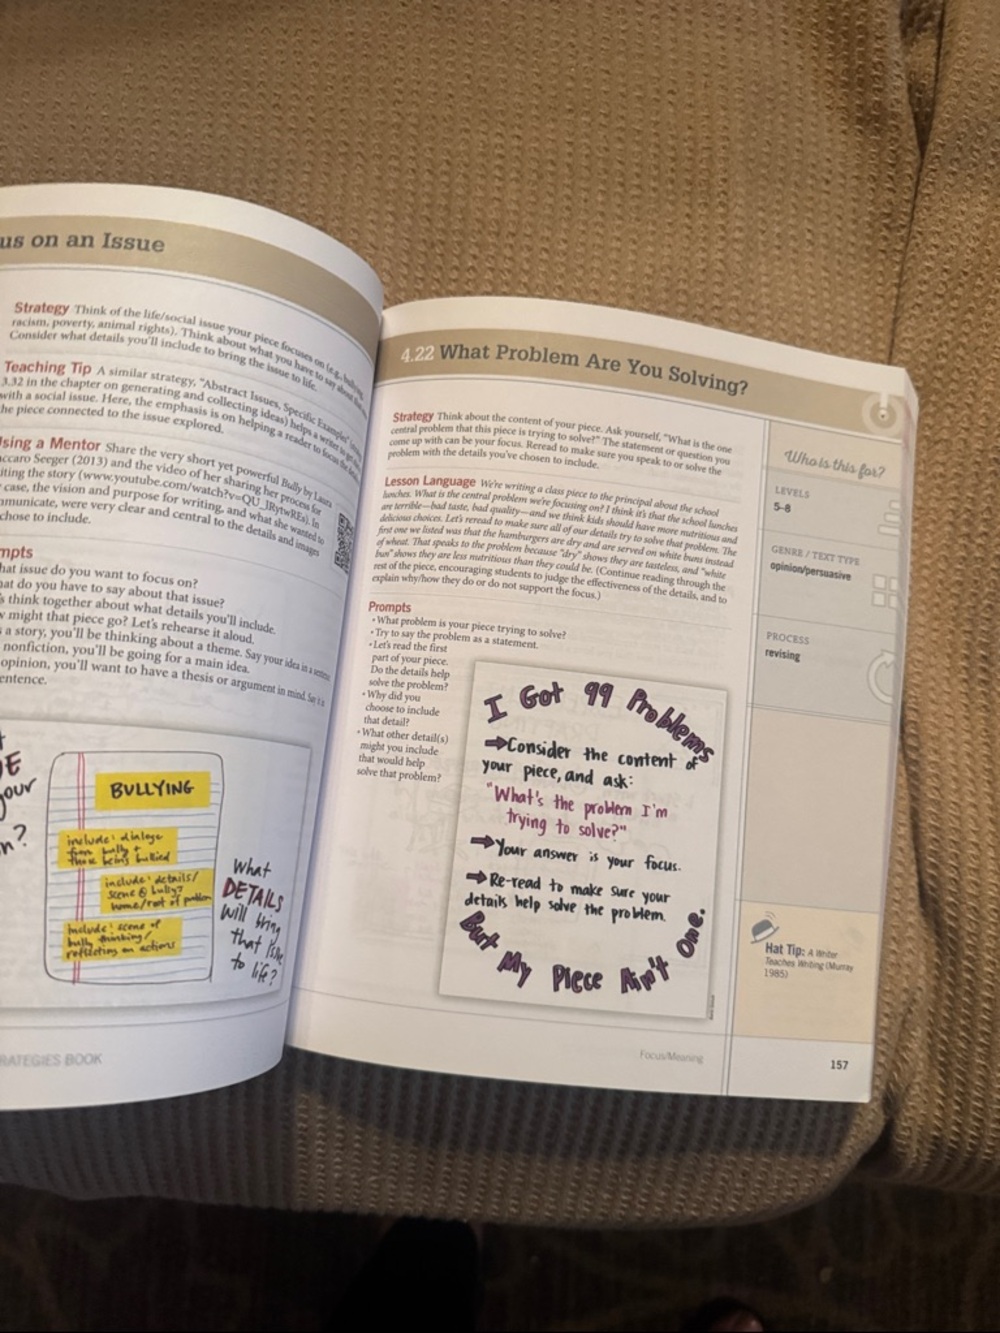 us on an Issue
Strategy Think of the life/social issue your piece focuses on (e.g., bullying,
racism, poverty, animal rights). Think about what you have to say about that
Consider what details you'll include to bring the issue to life.
Teaching Tip A similar strategy, "Abstract Issues, Specific Examples"
3.32 in the chapter on generating and collecting ideas) helps a writer
with a social issue. Here, the emphasis is on helping a reader to focus the
he piece connected to the issue explored.
sing a Mentor Share the very short yet powerful Bully by Laura
accaro Seeger (2013) and the video of her sharing her process for
iting the story (www.youtube.com/watch?v=QU_JRytwREs). In
case, the vision and purpose for writing, and what she wanted to
mmunicate, were very clear and central to the details and images
chose to include.
mpts
hat issue do you want to focus on?
hat do you have to say about that issue?
s think together about what details you'll include.
w might that piece go? Let's rehearse it aloud.
s a story, you'll be thinking about a theme. Say your idea in a sentence.
nonfiction, you'll be going for a main idea.
opinion, you'll want to have a thesis or argument in mind. Say it a
entence.
E
your
n?
BULLYING
include: dialoge
from bully +
those being bullied
include: details/
scene @ bully?
home/root of problem
include: scene of
bully thinking/
reflecting on actions
What
DETAILS
will bring
that issue
to life?
RATEGIES BOOK
4.22 What Problem Are You Solving?
Strategy Think about the content of your piece. Ask yourself, "What is the one
central problem that this piece is trying to solve?" The statement or question you
come up with can be your focus. Reread to make sure you speak to or solve the
problem with the details you've chosen to include.
Lesson Language We're writing a class piece to the principal about the school
lunches. What is the central problem we're focusing on? I think it's that the school lunches
are terrible—bad taste, bad quality—and we think kids should have more nutritious and
delicious choices. Let's reread to make sure all of our details try to solve that problem. The
first one we listed was that the hamburgers are dry and are served on white buns instead
of wheat. That speaks to the problem because "dry" shows they are tasteless, and "white
bun" shows they are less nutritious than they could be. (Continue reading through the
rest of the piece, encouraging students to judge the effectiveness of the details, and to
explain why/how they do or do not support the focus.)
Prompts
• What problem is your piece trying to solve?
• Try to say the problem as a statement.
• Let's read the first
part of your piece.
Do the details help
solve the problem?
• Why did you
choose to include
that detail?
• What other detail(s)
might you include
that would help
solve that problem?
I Got 99 Problems
⇒Consider the content of
your piece, and ask:
"What's the problem I'm
trying to solve?"
⇒Your answer is your focus.
⇒Re-read to make sure your
details help solve the problem.
But My Piece Ain't One.
Who is this for?
LEVELS
5–8
GENRE / TEXT TYPE
opinion/persuasive
PROCESS
revising
Hat Tip: A Writer
Teaches Writing (Murray
1985)
Focus/Meaning
157